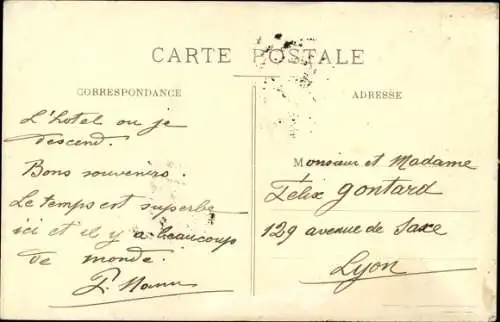 CARTE POSTALE
CORRESPONDANCE
ADRESSE
L'hotel ou je
descend.
Bons souvenirs.
Le temps est superbe
ici et il y a beaucoup
de monde.
Monsieur et Madame
Félix Gontard
129 avenue de Saxe
Lyon